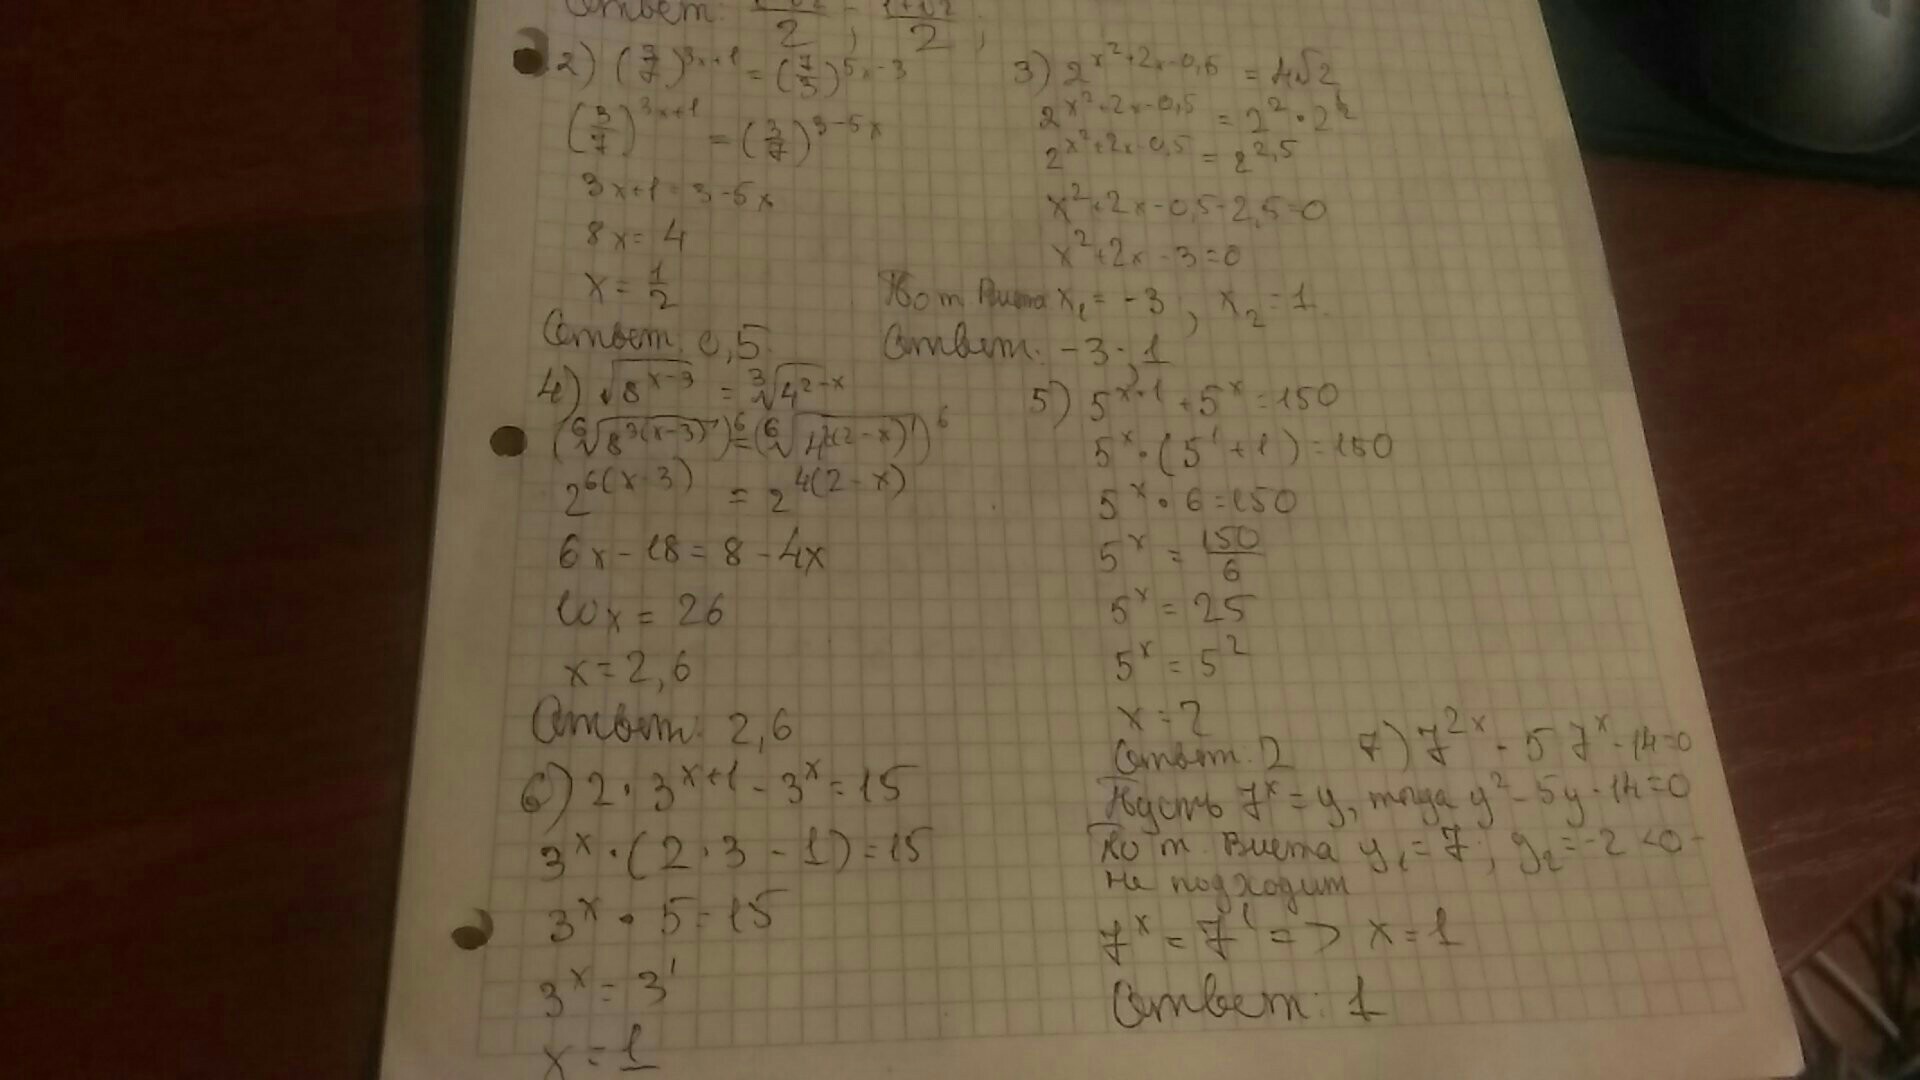 Ответ: 2 ; 2 ;
2) (3/7)^(3x+1) = (7/3)^(5x-3)
(3/7)^(3x+1) = (3/7)^(3-5x)
3x+1=3-5x
8x=4
x=1/2
Ответ: 0,5.
3) 2^(x²+2x-0,5) = 4√2
2^(x²+2x-0,5) = 2²·2^(1/2)
2^(x²+2x-0,5) = 2^(2,5)
x²+2x-0,5-2,5=0
x²+2x-3=0
По т. Виета x₁=-3, x₂=1.
Ответ: -3; 1
4) √(8^(x-3)) = ∛(4^(2-x))
(⁶√(8^(3(x-3))))⁶=(⁶√(4^(2(2-x))))⁶
2^(6(x-3)) = 2^(4(2-x))
6x-18=8-4x
10x=26
x=2,6
Ответ: 2,6
5) 5^(x+1)+5^x=150
5^x·(5¹+1)=150
5^x·6=150
5^x=150/6
5^x=25
5^x=5²
x=2
Ответ: 2
6) 2·3^(x+1)-3^x=15
3^x·(2·3-1)=15
3^x·5=15
3^x=3¹
x=1
7) 7^(2x)-5 7^x-14=0
Пусть 7^x=y, тогда y²-5y-14=0
По т. Виета y₁=7; y₂=-2<0-
не подходит
7^x=7¹=> x=1
Ответ: 1